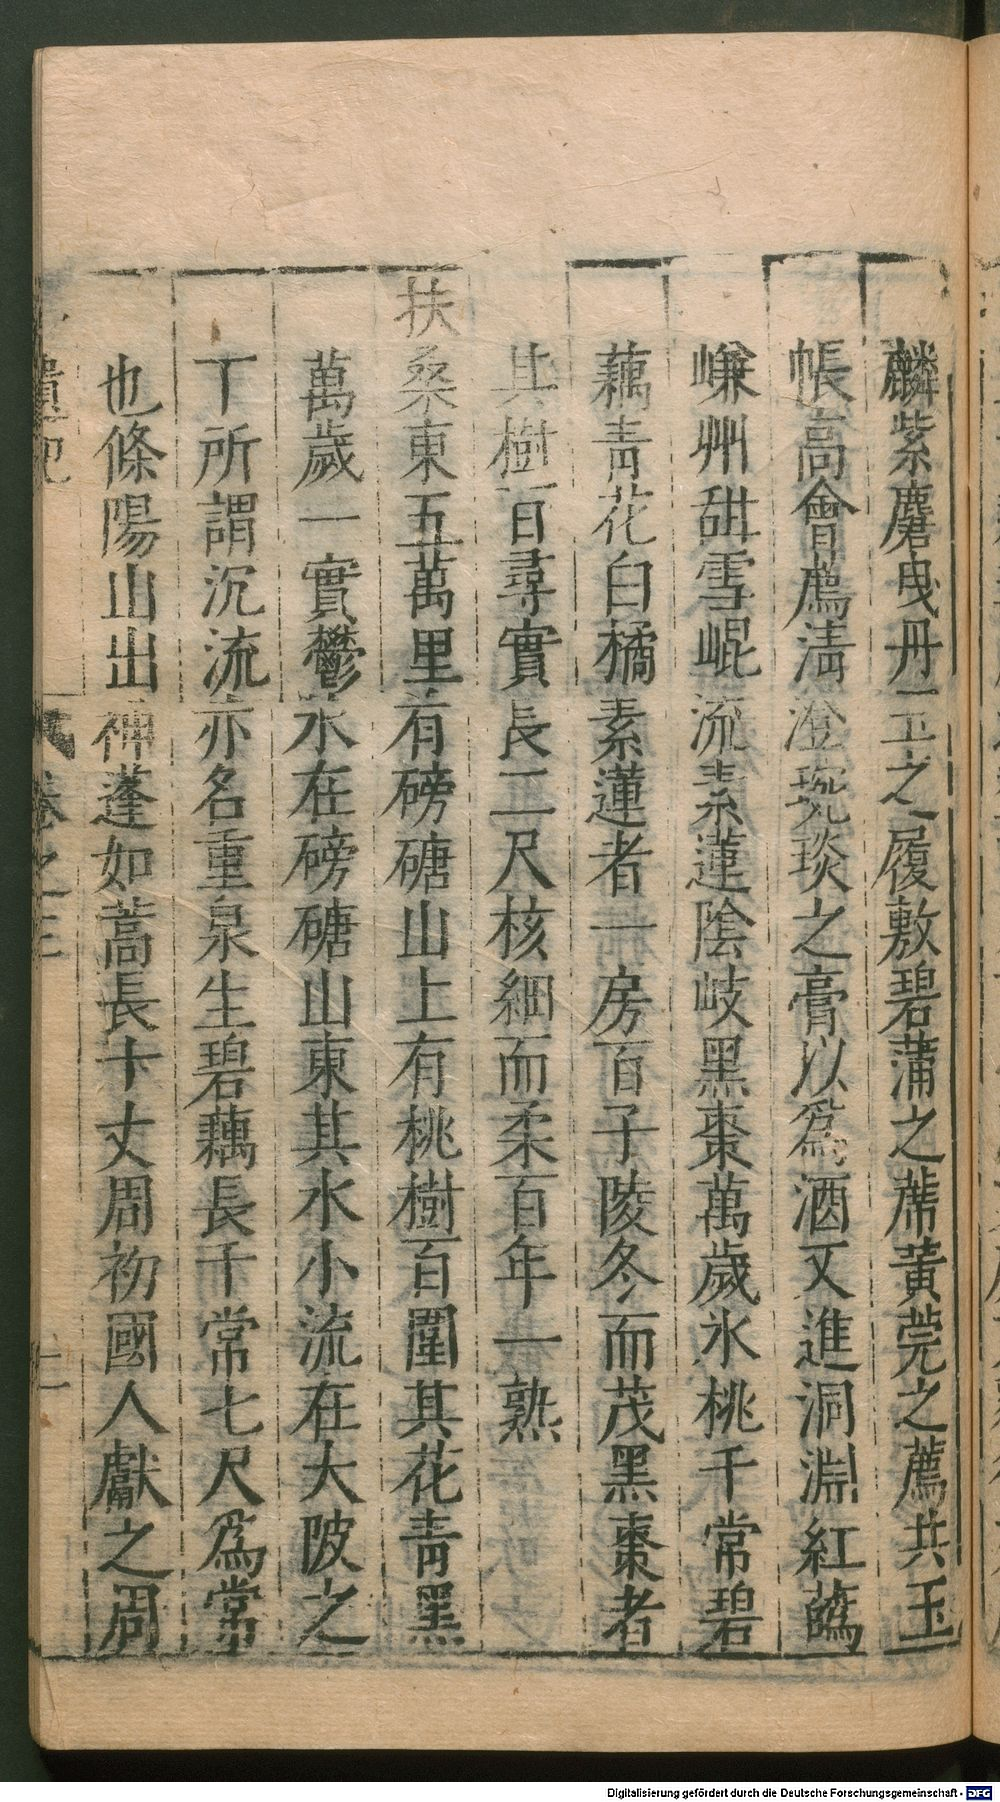 麟紫麏曳丹玉之履敷碧蒲之蓆黃莞之薦共玉
帳高會薦清澄琬琰之膏以爲酒又進洞淵紅蘤
嵰州甜雪崐流素蓮陰岐黑棗萬歲氷桃千常碧
藕青花白橘素蓮者一房百子陵冬而茂黑棗者
其樹百尋實長二尺核細而柔百年一熟
扶桑東五萬里有磅磄山上有桃樹百圍其花青黑
萬歲一實鬱水在磅磄山東其水小流在大陂之
丁所謂沉流亦名重泉生碧藕長千常七尺爲常
也條陽山出神蓬如蒿長十丈周初國人獻之周
遺記
卷之三
Digitalisierung gefördert durch die Deutsche Forschungsgemeinschaft - DFG